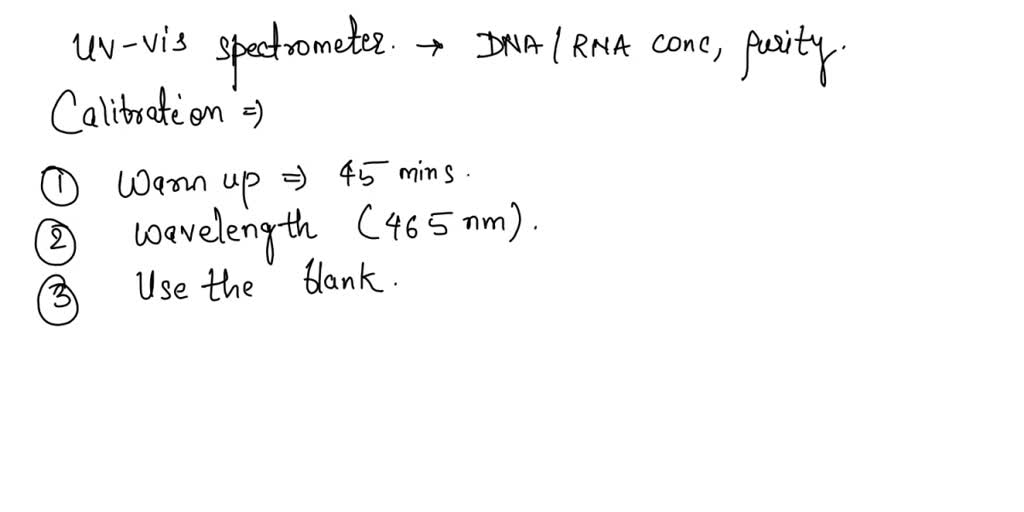 UV-Vis spectrometer. → DNA/RNA conc, purity.
Calibration ⇒
① Warm up ⇒ 45 mins.
② wavelength (465 nm).
③ Use the blank.